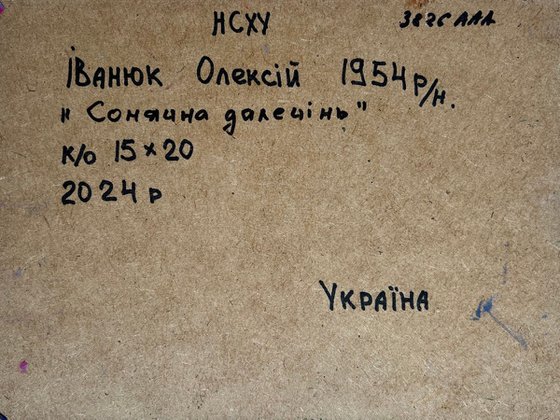 НСХУ 3826 ААА
Іванюк Олексій 1954 р/н.
"Сонячна далечінь"
к/о 15×20
2024 р
Україна